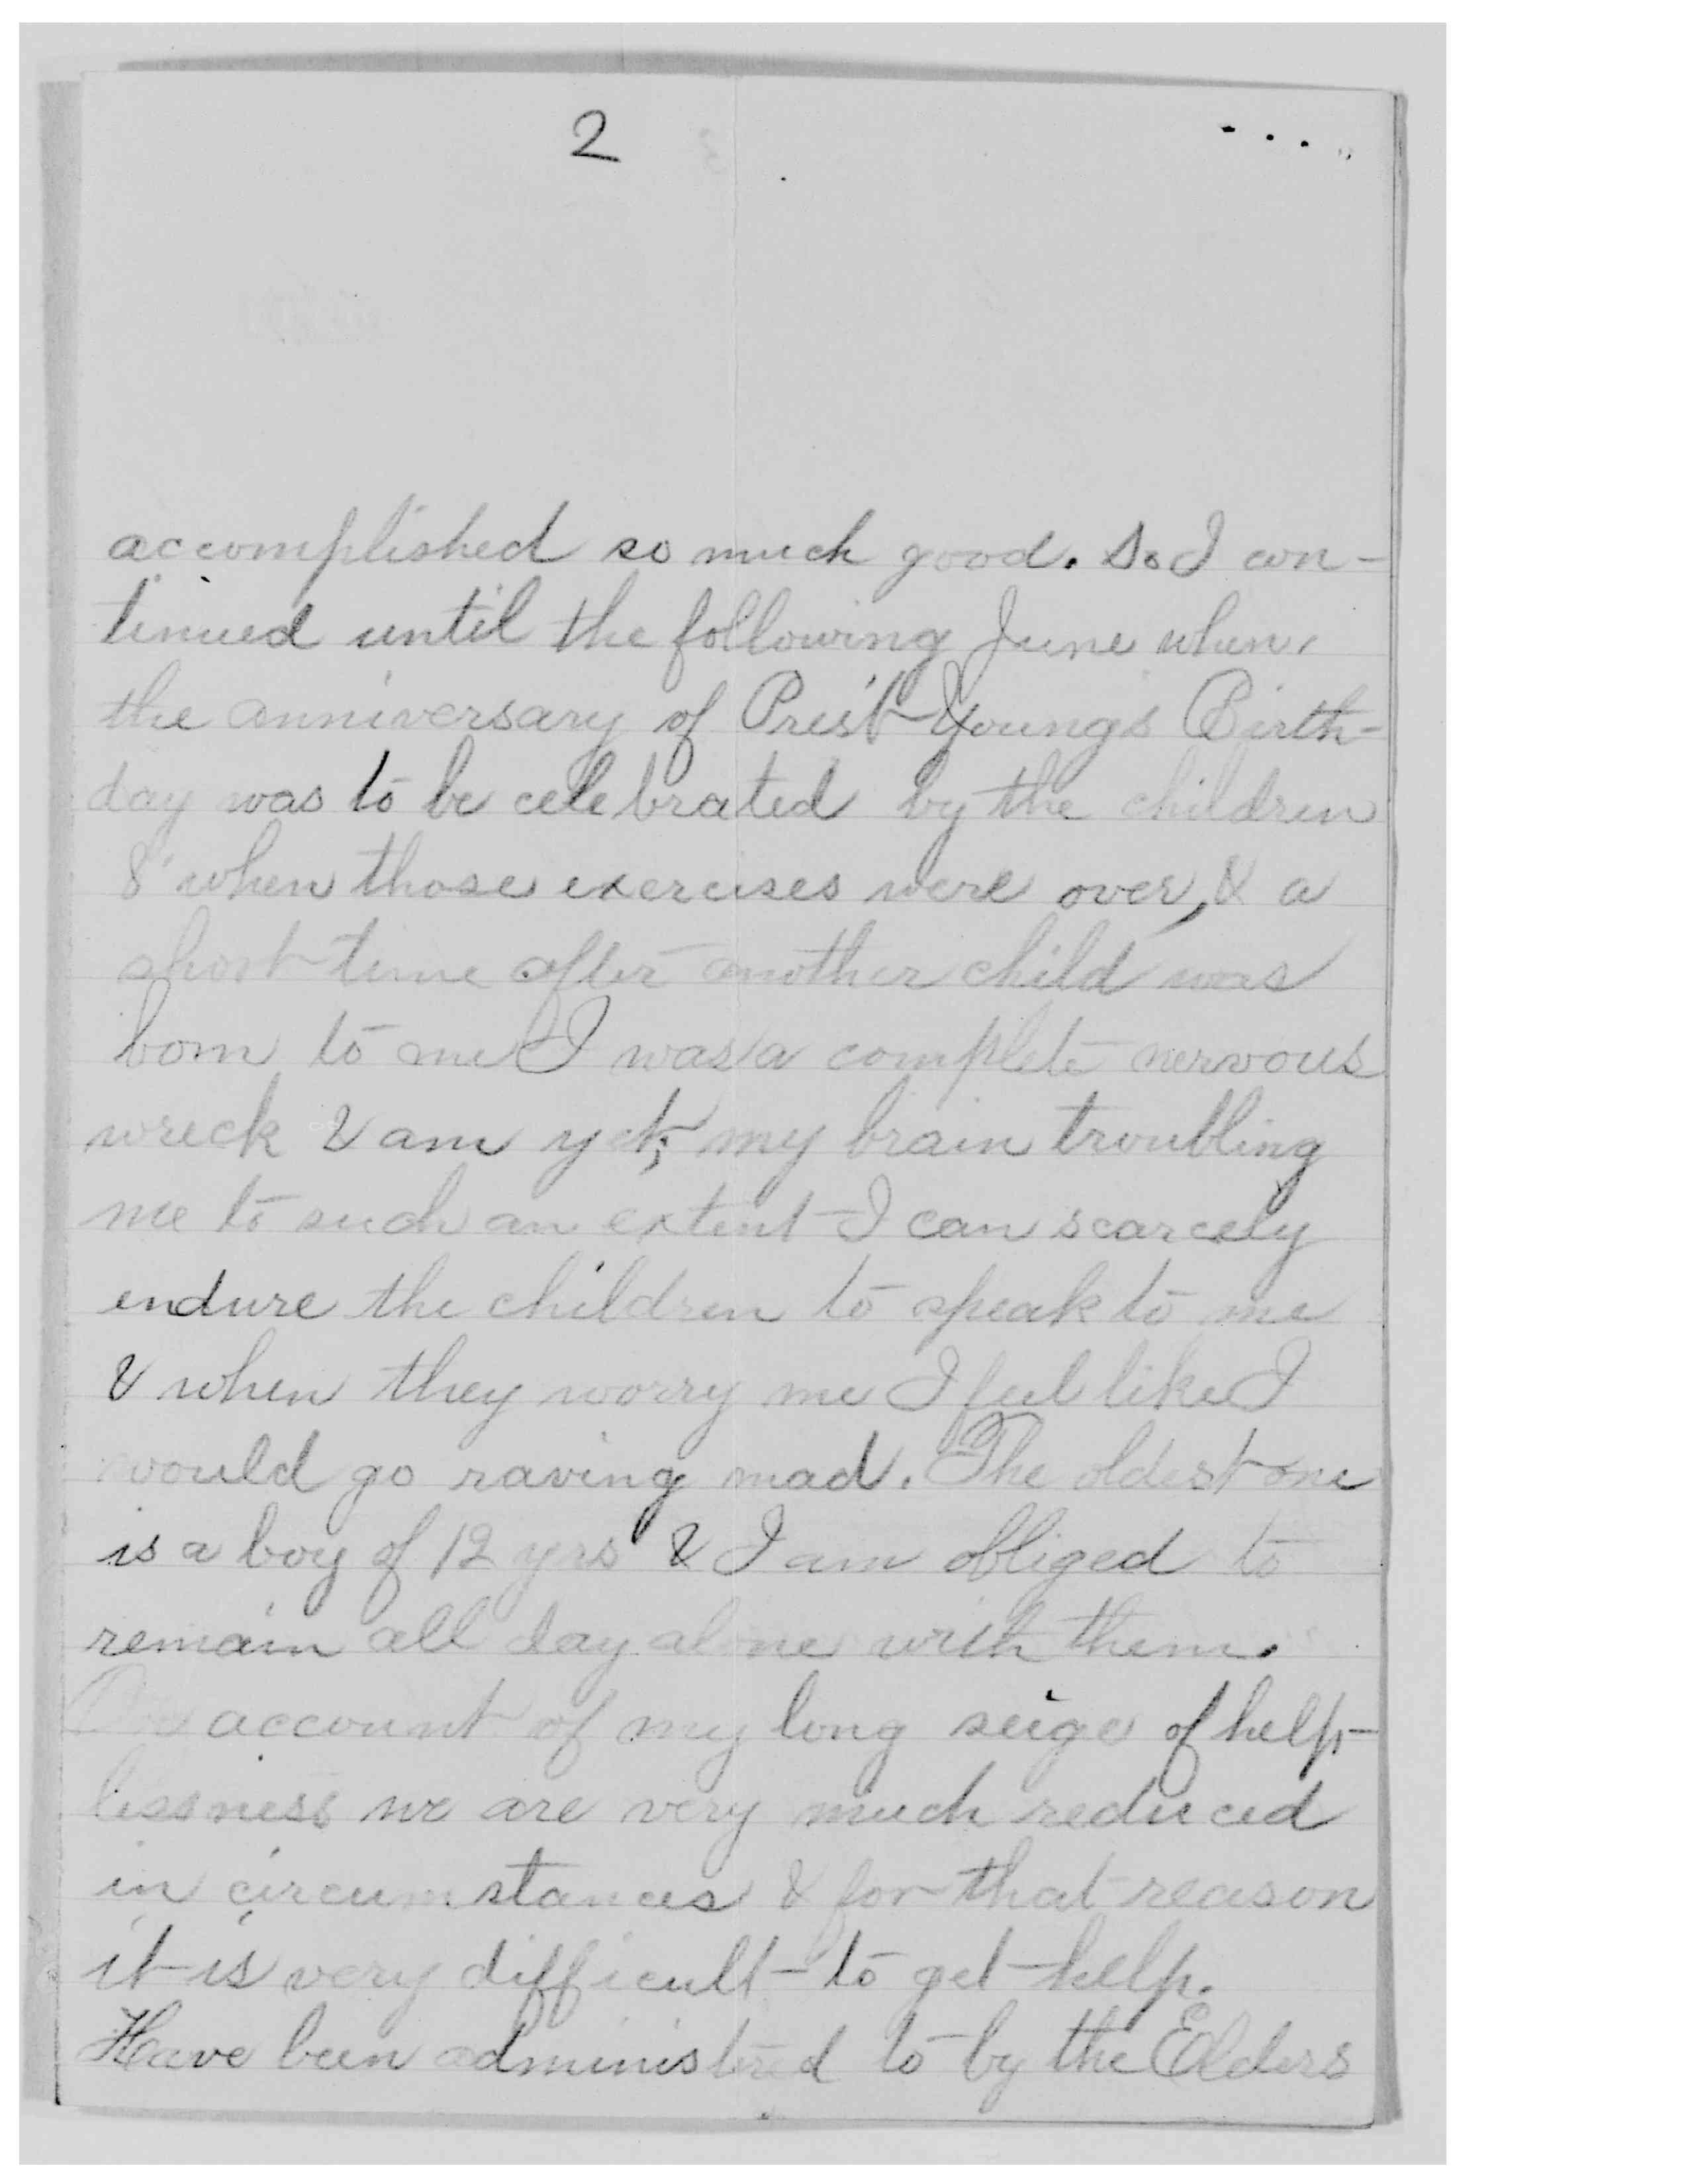 2
accomplished so much good. So I con-
tinued until the following June when,
the anniversary of Prest Youngs Birth-
day was to be celebrated by the children
& when those exercises were over, & a
short time after another child was
born to me I was a complete nervous
wreck & am yet; my brain troubling
me to such an extent I can scarcely
endure the children to speak to me
& when they worry me I feel like I
would go raving mad. The oldest one
is a boy of 12 yrs & I am obliged to
remain all day alone with them.
On account of my long seige of help-
lessness we are very much reduced
in circumstances & for that reason
it is very difficult to get help.
Have been administered to by the Elders